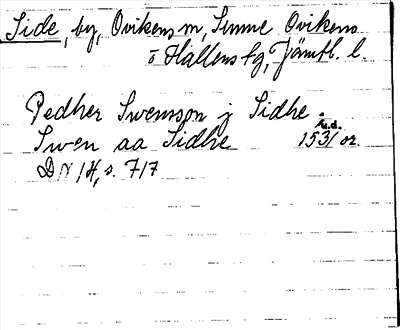 Side, by, Ovikens sn, Sunne Ovikens
o Hallens tg, Jämtl. l.
Pedher Swensson j Sidhe.
Swen aa Sidhe u.d. 1531 or.
DN 14, s. 717